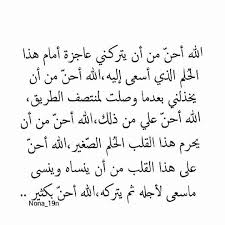 الله أحنّ من أن يتركني عاجزة أمام هذا
الحلم الذي أسعى إليه،الله أحنّ من أن
يخذلني بعدما وصلت لمنتصف الطريق،
الله أحنّ علي من ذلك،الله أحنّ من أن
يحرم هذا القلب الحلم الصّغير،الله أحنّ
على هذا القلب من أن ينساه وينسى
ماسعى لأجله ثم يتركه،الله أحنّ بكثير ..
Nona_19n